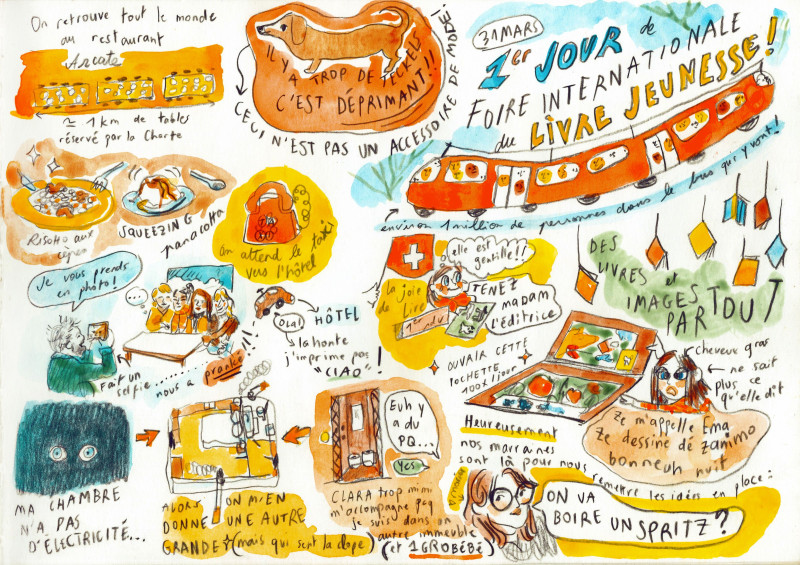 On retrouve tout le monde
au restaurant
Arcate
≃ 1 km de tables
réservé par la Charte
IL Y A TROP DE TECKELS
C'EST DÉPRIMANT!!
CECI N'EST PAS UN ACCESSOIRE DE MODE!
31 MARS
1er JOUR de
FOIRE INTERNATIONALE
du LIVRE JEUNESSE!
environ 1 million de personnes dans le bus qui y vont!
RISOTTO AUX
cèpes
SQUEEZING
panacotta
On attend le taxi
vers l'hôtel
Je vous prends
en photo!
...
Fait un
selfie......
nous a pranké
OLA!
HÔTEL
la honte
j'imprime pas
"CIAO"!
elle est
gentille!!
La joie
de Lire
1er RDV
TENEZ
MADAM
l'éditrice
OUVRIR CETTE
POCHETTE
100x/jour
DES
LIVRES et
IMAGES
PARTOUT
cheveux gras
ne sait
plus ce
qu'elle dit
Ze m'appelle Ema
Ze dessine dé zammo
bonneuh nuit
MA CHAMBRE
N'A PAS
D'ÉLECTRICITÉ...
ALORS ON M'EN
DONNE UNE AUTRE
GRANDE (mais qui sent la clope)
Euh y
a du
PQ...
Yes
CLARA trop mimi
m'accompagne pcq
je suis dans un
autre immeuble
(et 1 GROBÉBÉ)
Heureusement
nos marraines
sont là pour nous remettre les idées en place:
ON VA
BOIRE UN SPRITZ?